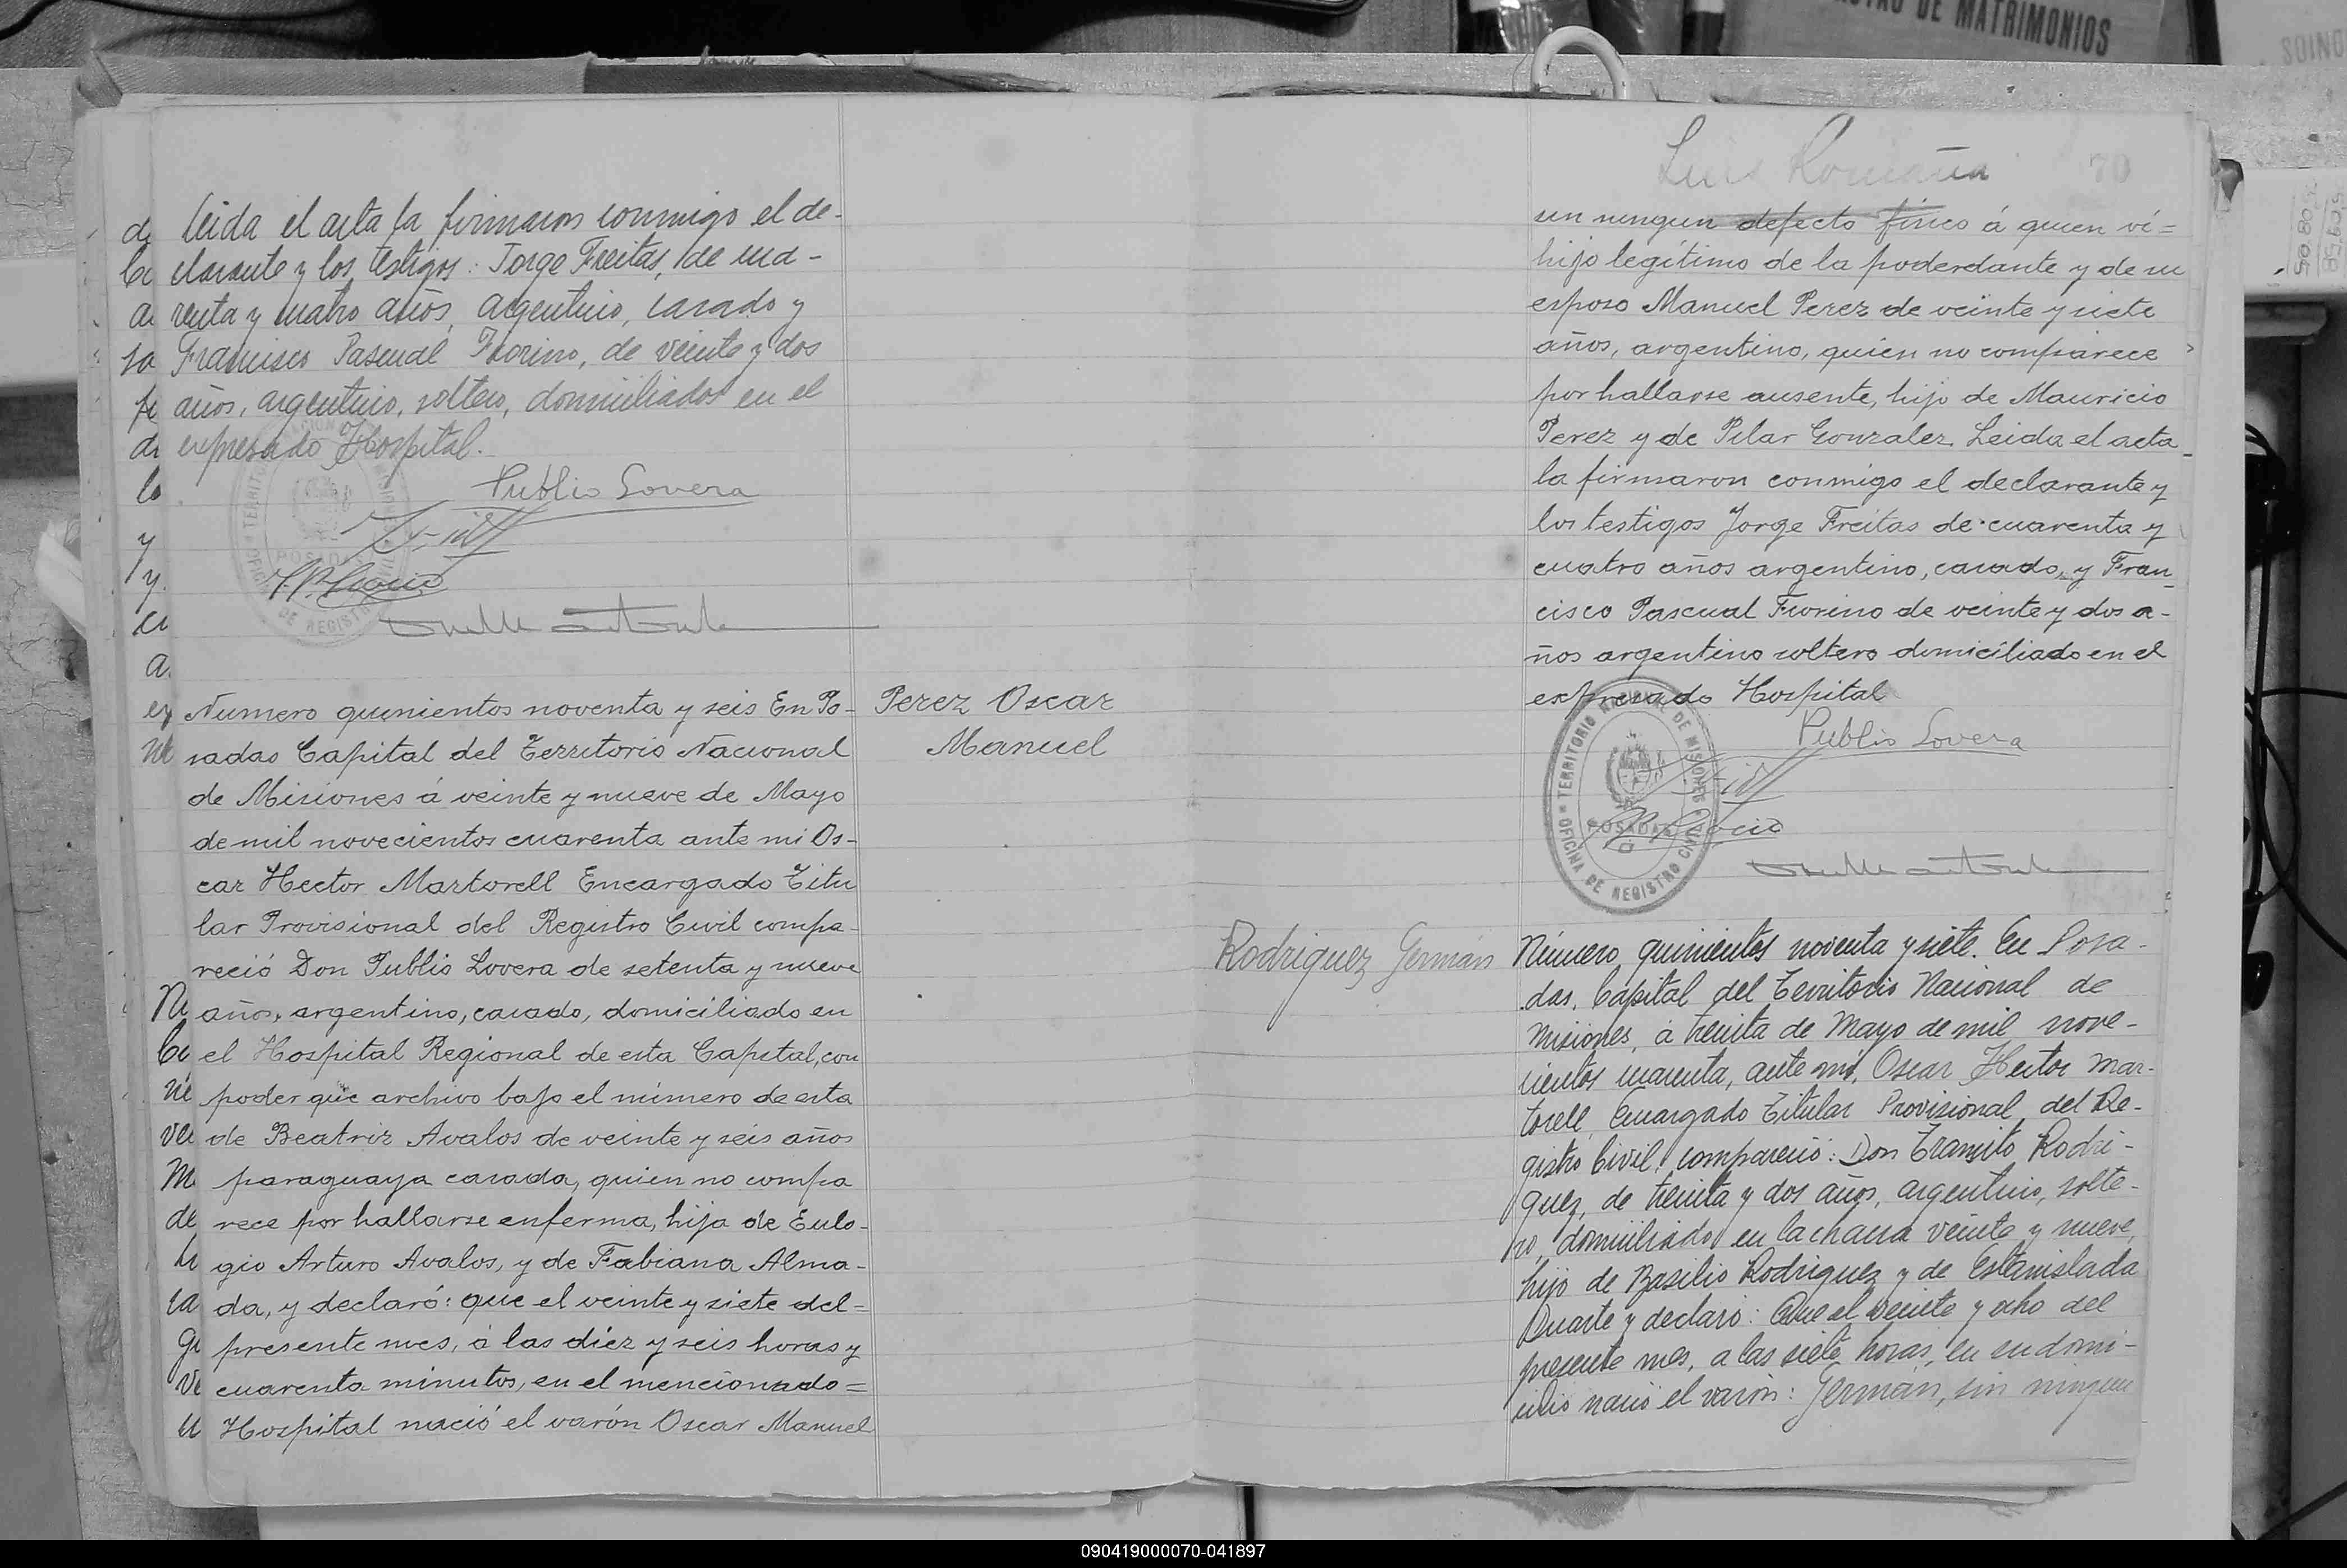 leida el acta la firmaron conmigo el de-
clarante y los testigos: Jorge Freitas, de cua-
renta y cuatro años, argentino, casado y
Francisco Pascual Fiorino, de veinte y dos
años, argentino, soltero, domiciliados en el
expresado Hospital.
Publio Lovera
Numero quinientos noventa y seis En Po-
sadas Capital del Territorio Nacional
de Misiones á veinte y nueve de Mayo
de mil novecientos cuarenta ante mi Os-
car Hector Martorell Encargado Titu
lar Provisional del Registro Civil compa-
reció Don Publio Lovera de setenta y nueve
años, argentino, casado, domiciliado en
el Hospital Regional de esta Capital, con
poder que archivo bajo el número de esta
de Beatriz Avalos de veinte y seis años
paraguaya casada, quien no compa
rece por hallarse enferma, hija de Eulo-
gio Arturo Avalos, y de Fabiana Alma-
da, y declaró: que el veinte y siete del=
presente mes, á las diez y seis horas y
cuarenta minutos, en el mencionado=
Hospital nació el varón Oscar Manuel
Perez Oscar
Manuel
DE MATRIMONIOS
Luis Romaña
70
sin ningun defecto físico á quien ví=
hijo legítimo de la poderdante y de su
esposo Manuel Perez de veinte y siete
años, argentino, quien no comparece
por hallarse ausente, hijo de Mauricio
Perez y de Pilar Gonzalez. Leida el acta
la firmaron conmigo el declarante y
los testigos Jorge Freitas de cuarenta y
cuatro años argentino, casado, y Fran_
cisco Pascual Fiorino de veinte y dos a-
ños argentino soltero domiciliado en el
expresado Hospital
Publio Lovera
TERRITORIO NACIONAL DE MISIONES
POSADAS
OFICINA DE REGISTRO CIVIL
Rodriguez Germán
Número quinientos noventa y siete. En Posa-
das, Capital del Territorio Nacional de
Misiones, á treinta de Mayo de mil nove-
cientos cuarenta, ante mí, Oscar Hector Mar-
torell, Encargado Titular Provisional del Re-
gistro Civil, compareció: Don Transito Rodri-
guez, de treinta y dos años, argentino, solte-
ro, domiciliado en la chacra veinte y nueve,
hijo de Basilio Rodriguez y de Estanislada
Duarte y declaró: Que el veinte y ocho del
presente mes, a las siete horas, en su domi-
cilio nació el varón: Germán, sin ningun
090419000070-041897